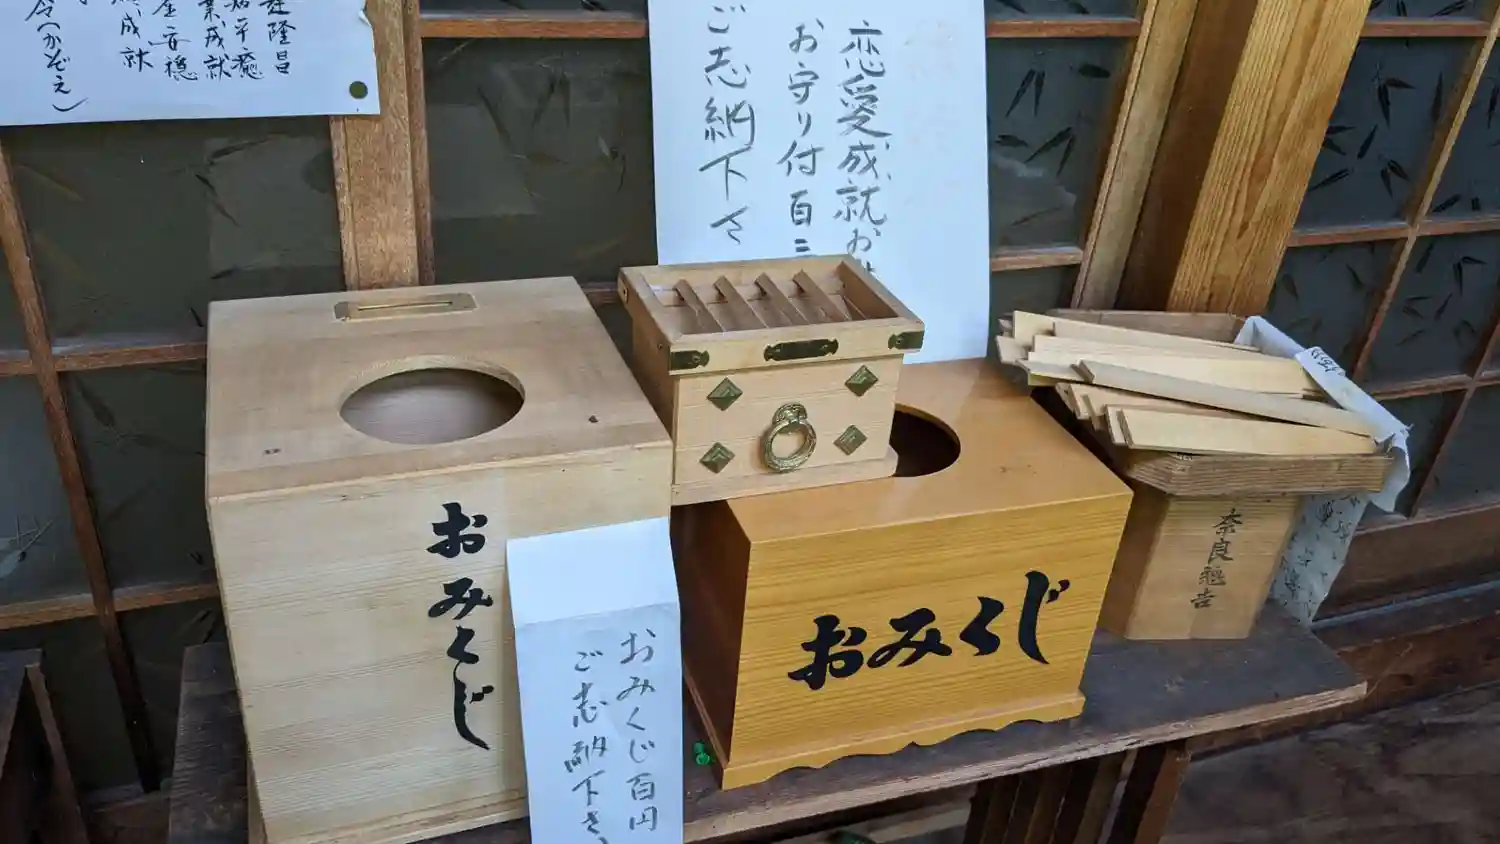 隆昌
平癒
業成就
全安穏
成就
令(かぞえ)
恋愛成就お
お守り付百
ご志納下さ
おみくじ
おみくじ百円
ご志納下さ
おみくじ
奈良